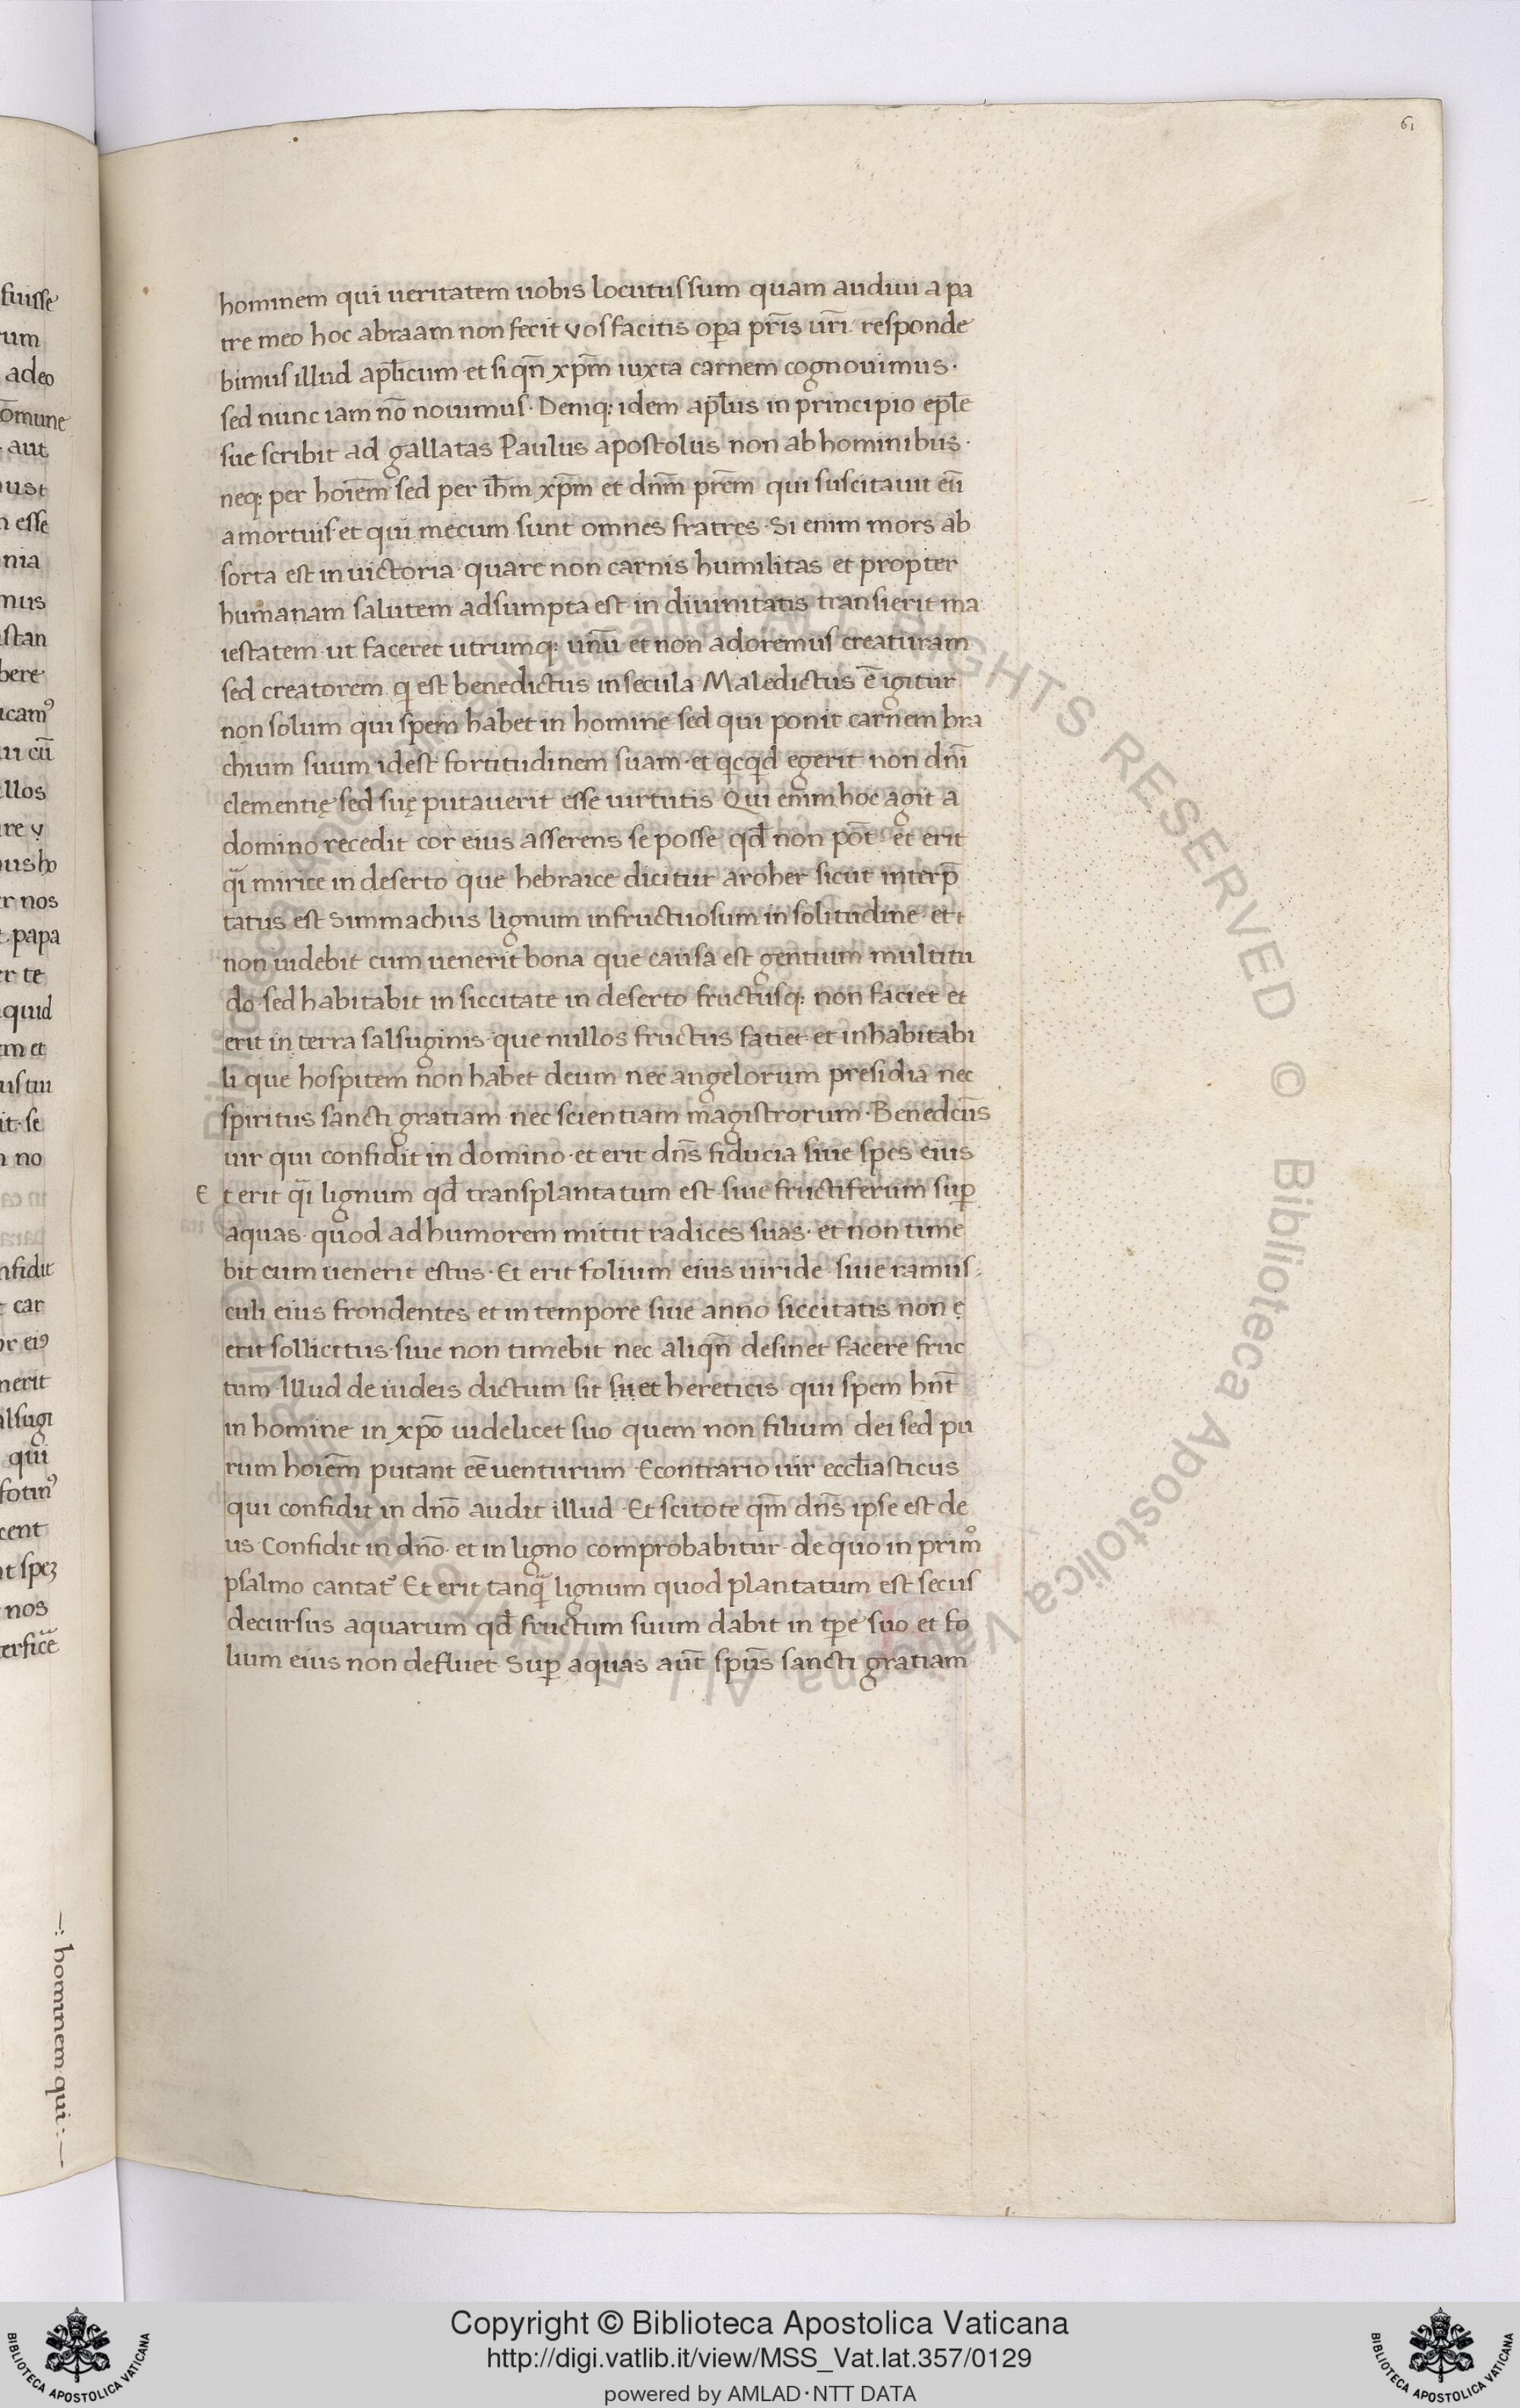 61
hominem qui ueritatem uobis locutus sum quam audiui a pa
tre meo hoc abraam non fecit vos facitis oꝑa pr̃is ur̃i. responde
bimus illud apl̃icum et si qñ xp̃m iuxta carnem cognouimus·
sed nunc iam nõ nouimus· Deniq: idem apl̃us in principio epl̃e
sue scribit ad gallatas Paulus apostolus non ab hominibus·
neq: per hoiẽm sed per ih̃m xp̃m et dñm prẽm qui suscitauit eũ
a mortuis et qui mecum sunt omnes fratres· Si enim mors ab
sorta est in uictoria quare non carnis humilitas et propter
humanam salutem adsumpta est in diuinitatis transierit ma
iestatem ut faceret utrumq: unũ et non adoremus creaturam
sed creatorem qi est benedictus in secula Maledictus ẽ igitur
non solum qui spem habet in homine sed qui ponit carnem bra
chium suum idest fortitudinem suam· et qicqid egerit non dñi
clementię sed suę putauerit esse uirtutis Qui enim hoc agit a
domino recedit cor eius asserens se posse qd̃ non põt· et erit
q̃i mirice in deserto que hebraice dicitur aroher sicut interp̃
tatus est Simmachus lignum infructuosum in solitudine· et
non uidebit cum uenerit bona que causa est gentium multitu
do· sed habitabit in siccitate in deserto fructusq: non faciet et
erit in terra salsuginis que nullos fructus fatiet et inhabitabi
li que hospitem non habet deum nec angelorum presidia nec
spiritus sancti gratiam nec scientiam magistrorum· Benedcũs
uir qui confidit in domino· et erit dñs fiducia siue spes eius
E t erit q̃i lignum qd̃ transplantatum est siue fructiferum suꝑ
aquas quod ad humorem mittit radices suas· et non time
bit cum uenerit estus· Et erit folium eius uiride siue ramus
culi eius frondentes et in tempore siue anno siccitatis non e
erit sollicitus siue non timebit nec aliqñ desinet facere fruc
tum· Illud de iudeis dictum sit su et hereticis qui spem hñt
in homine in xp̃o uidelicet suo quem non filium dei sed pu
rum hoiẽm putant eẽ uenturum· Econtrario uir eccl̃iasticus
qui confidit in dño audit illud· Et scitote qm̃ dñs ipse est de
us· Confidit in dño· et in ligno comprobabitur de quo in primo
psalmo cantat᾽ Et erit tanq̃ lignum quod plantatum est secus
decursus aquarum qd̃ fructum suum dabit in tp̃e suo et fo
lium eius non defluet Suꝑ aquas aut̃ spũs sancti gratiam
fuisse
rum
adeo
õmune
aut
esse
nia
mus
stan
bere
cũ
llos
nos
papa
er te
quid
et
it· se
no
nfidit
car
nerit
alsugi
qui
cent
nos
hominem qui
BIBLIOTECA APOSTOLICA VATICANA
Copyright © Biblioteca Apostolica Vaticana
http://digi.vatlib.it/view/MSS_Vat.lat.357/0129
powered by AMLAD·NTT DATA
BIBLIOTECA APOSTOLICA VATICANA